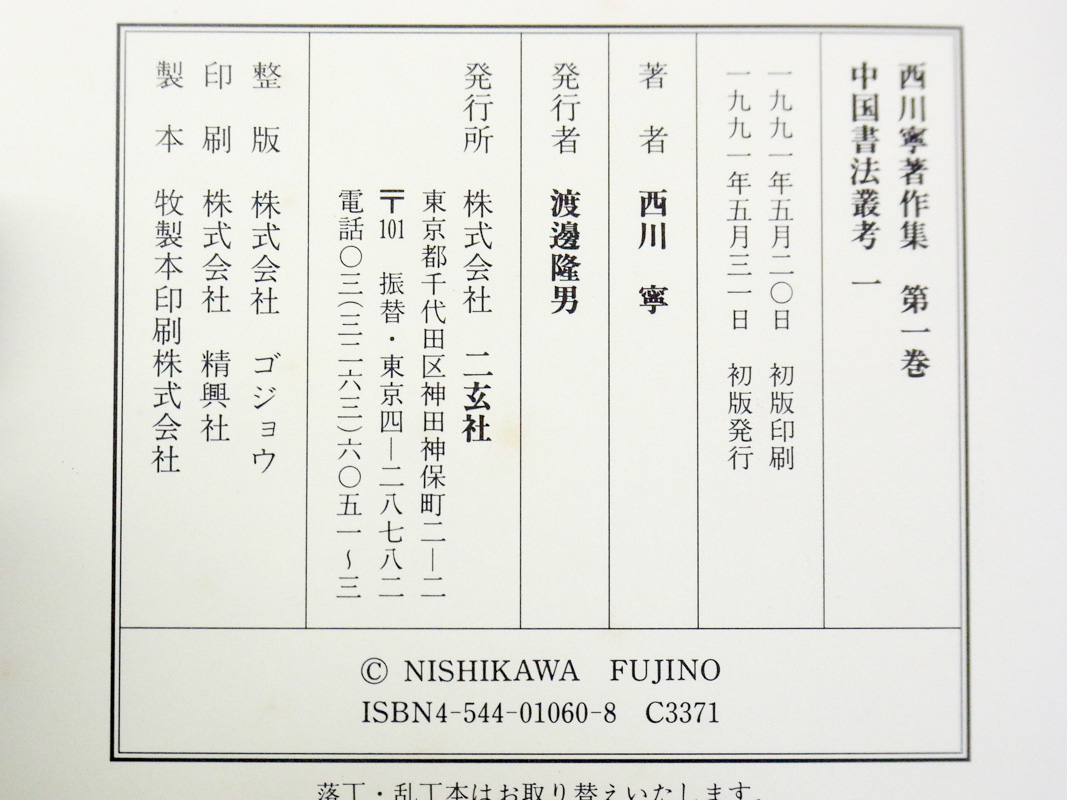 西川寧著作集　第一巻
中国書法叢考　一
一九九一年五月二〇日　初版印刷
一九九一年五月三一日　初版発行
著　者　西川　寧
発行者　渡邊隆男
発行所　株式会社　二玄社
東京都千代田区神田神保町二―二
〒101　振替・東京四―二八七八二
電話〇三(三二六三)六〇五一～三
整　版　株式会社　ゴジョウ
印　刷　株式会社　精興社
製　本　牧製本印刷株式会社
© NISHIKAWA　FUJINO
ISBN4-544-01060-8　C3371
落丁・乱丁本はお取り替えいたします。